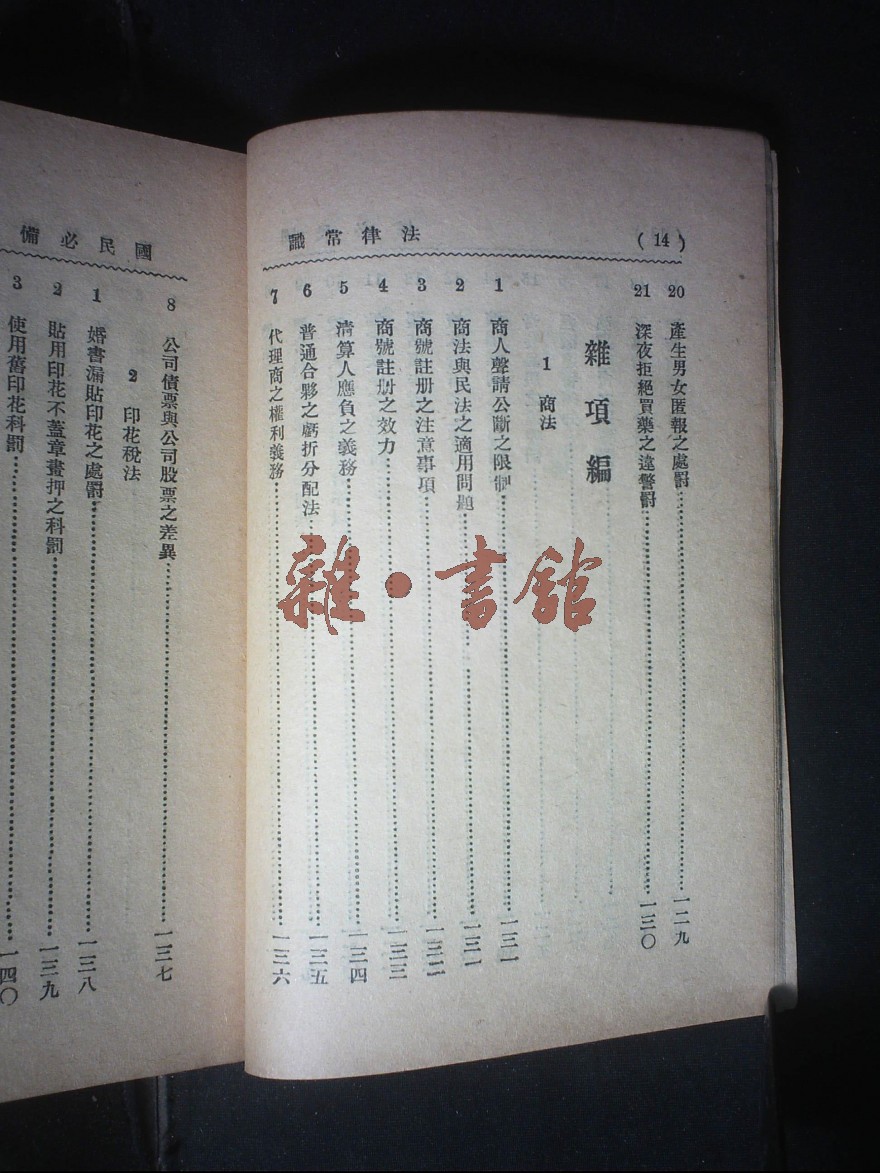 (14) 法律常識
20 產生男女匿報之處罸⋯⋯一二九
21 深夜拒絕買藥之違警罸⋯⋯一三〇
雜項編
1 商法
1 商人聲請公斷之限制⋯⋯一三一
2 商法與民法之適用問題⋯⋯一三一
3 商號註册之注意事項⋯⋯一三二
4 商號註册之效力⋯⋯一三三
5 清算人應負之義務⋯⋯一三四
6 普通合夥之虧折分配法⋯⋯一三五
7 代理商之權利義務⋯⋯一三六
國民必備
8 公司債票與公司股票之差異⋯⋯一三七
2 印花稅法
1 婚書漏貼印花之處罸⋯⋯一三八
2 貼用印花不蓋章畫押之科罰⋯⋯一三九
3 使用舊印花科罰⋯⋯一四〇
雜·書舘